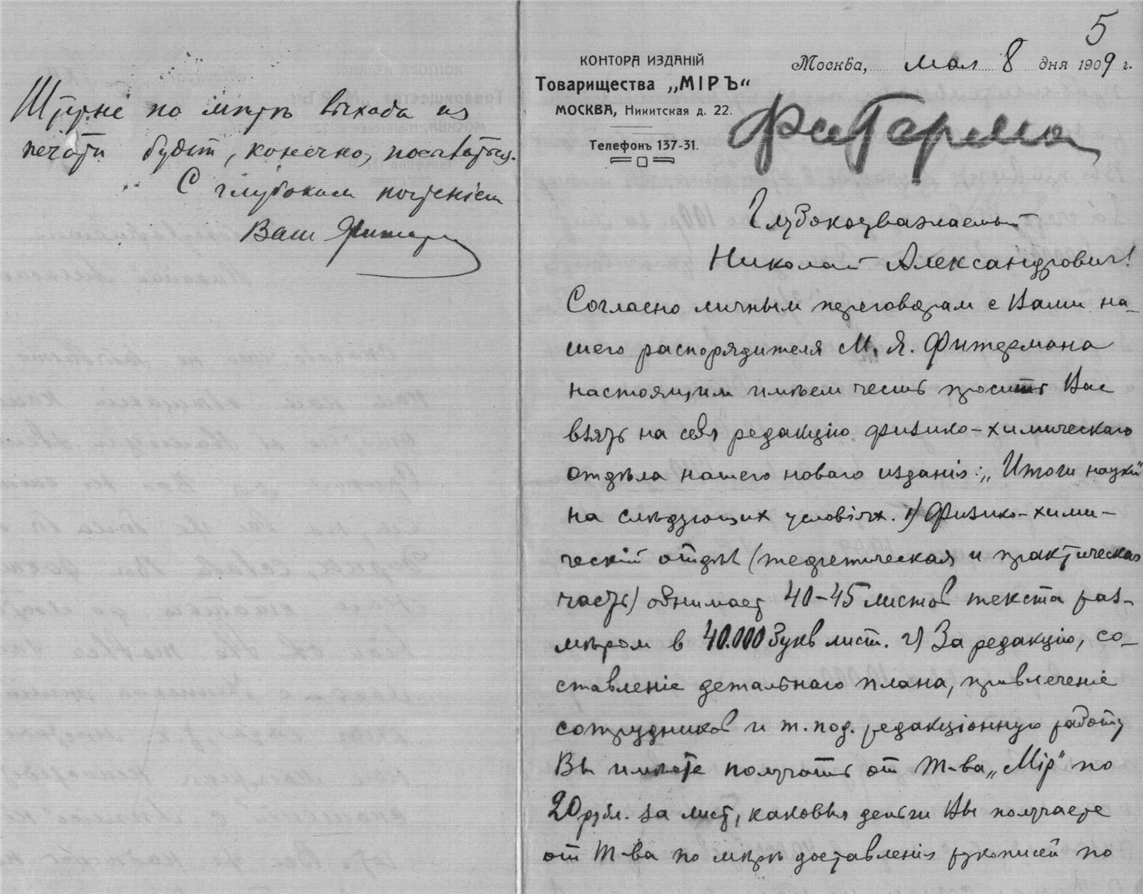 Штрупе по мѣрѣ выхода из
печати будет, конечно, посылаться.
С глубоким почтеніем
Ваш
5
КОНТОРА ИЗДАНІЙ
Товарищества „МІРЪ“
МОСКВА, Никитская д. 22.
Телефонъ 137-31.
Москва, мая 8 дня 1909 г.
Глубокоуважаемый
Николай Александрович!
Согласно личным переговорам с Вами на-
шего распорядителя М. Я. Фитермана
настоящим имѣем честь просить Вас
взять на себя редакцію физико-химическаго
отдѣла нашего новаго изданія: „Итоги науки“
на слѣдующих условіях. 1) Физико-хими-
ческій отдѣл (теоретическая и практическая
часть) обнимает 40-45 листов текста раз-
мѣром в 40.000 букв лист. 2) За редакцію, со-
ставленіе детальнаго плана, привлеченіе
сотрудников и т. под. редакціонную работу
Вы имѣете получать от Т-ва „Мір“ по
20 рубл. за лист, каковыя деньги Вы получаете
от Т-ва по мѣрѣ доставленія рукописей по